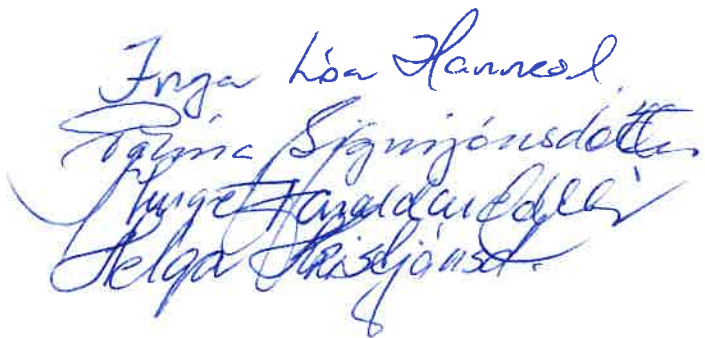 Inga Lóa Hannesd.
Pálína Sigurjónsdóttir
Inga Haraldsdóttir
Helga Kristjánsd.